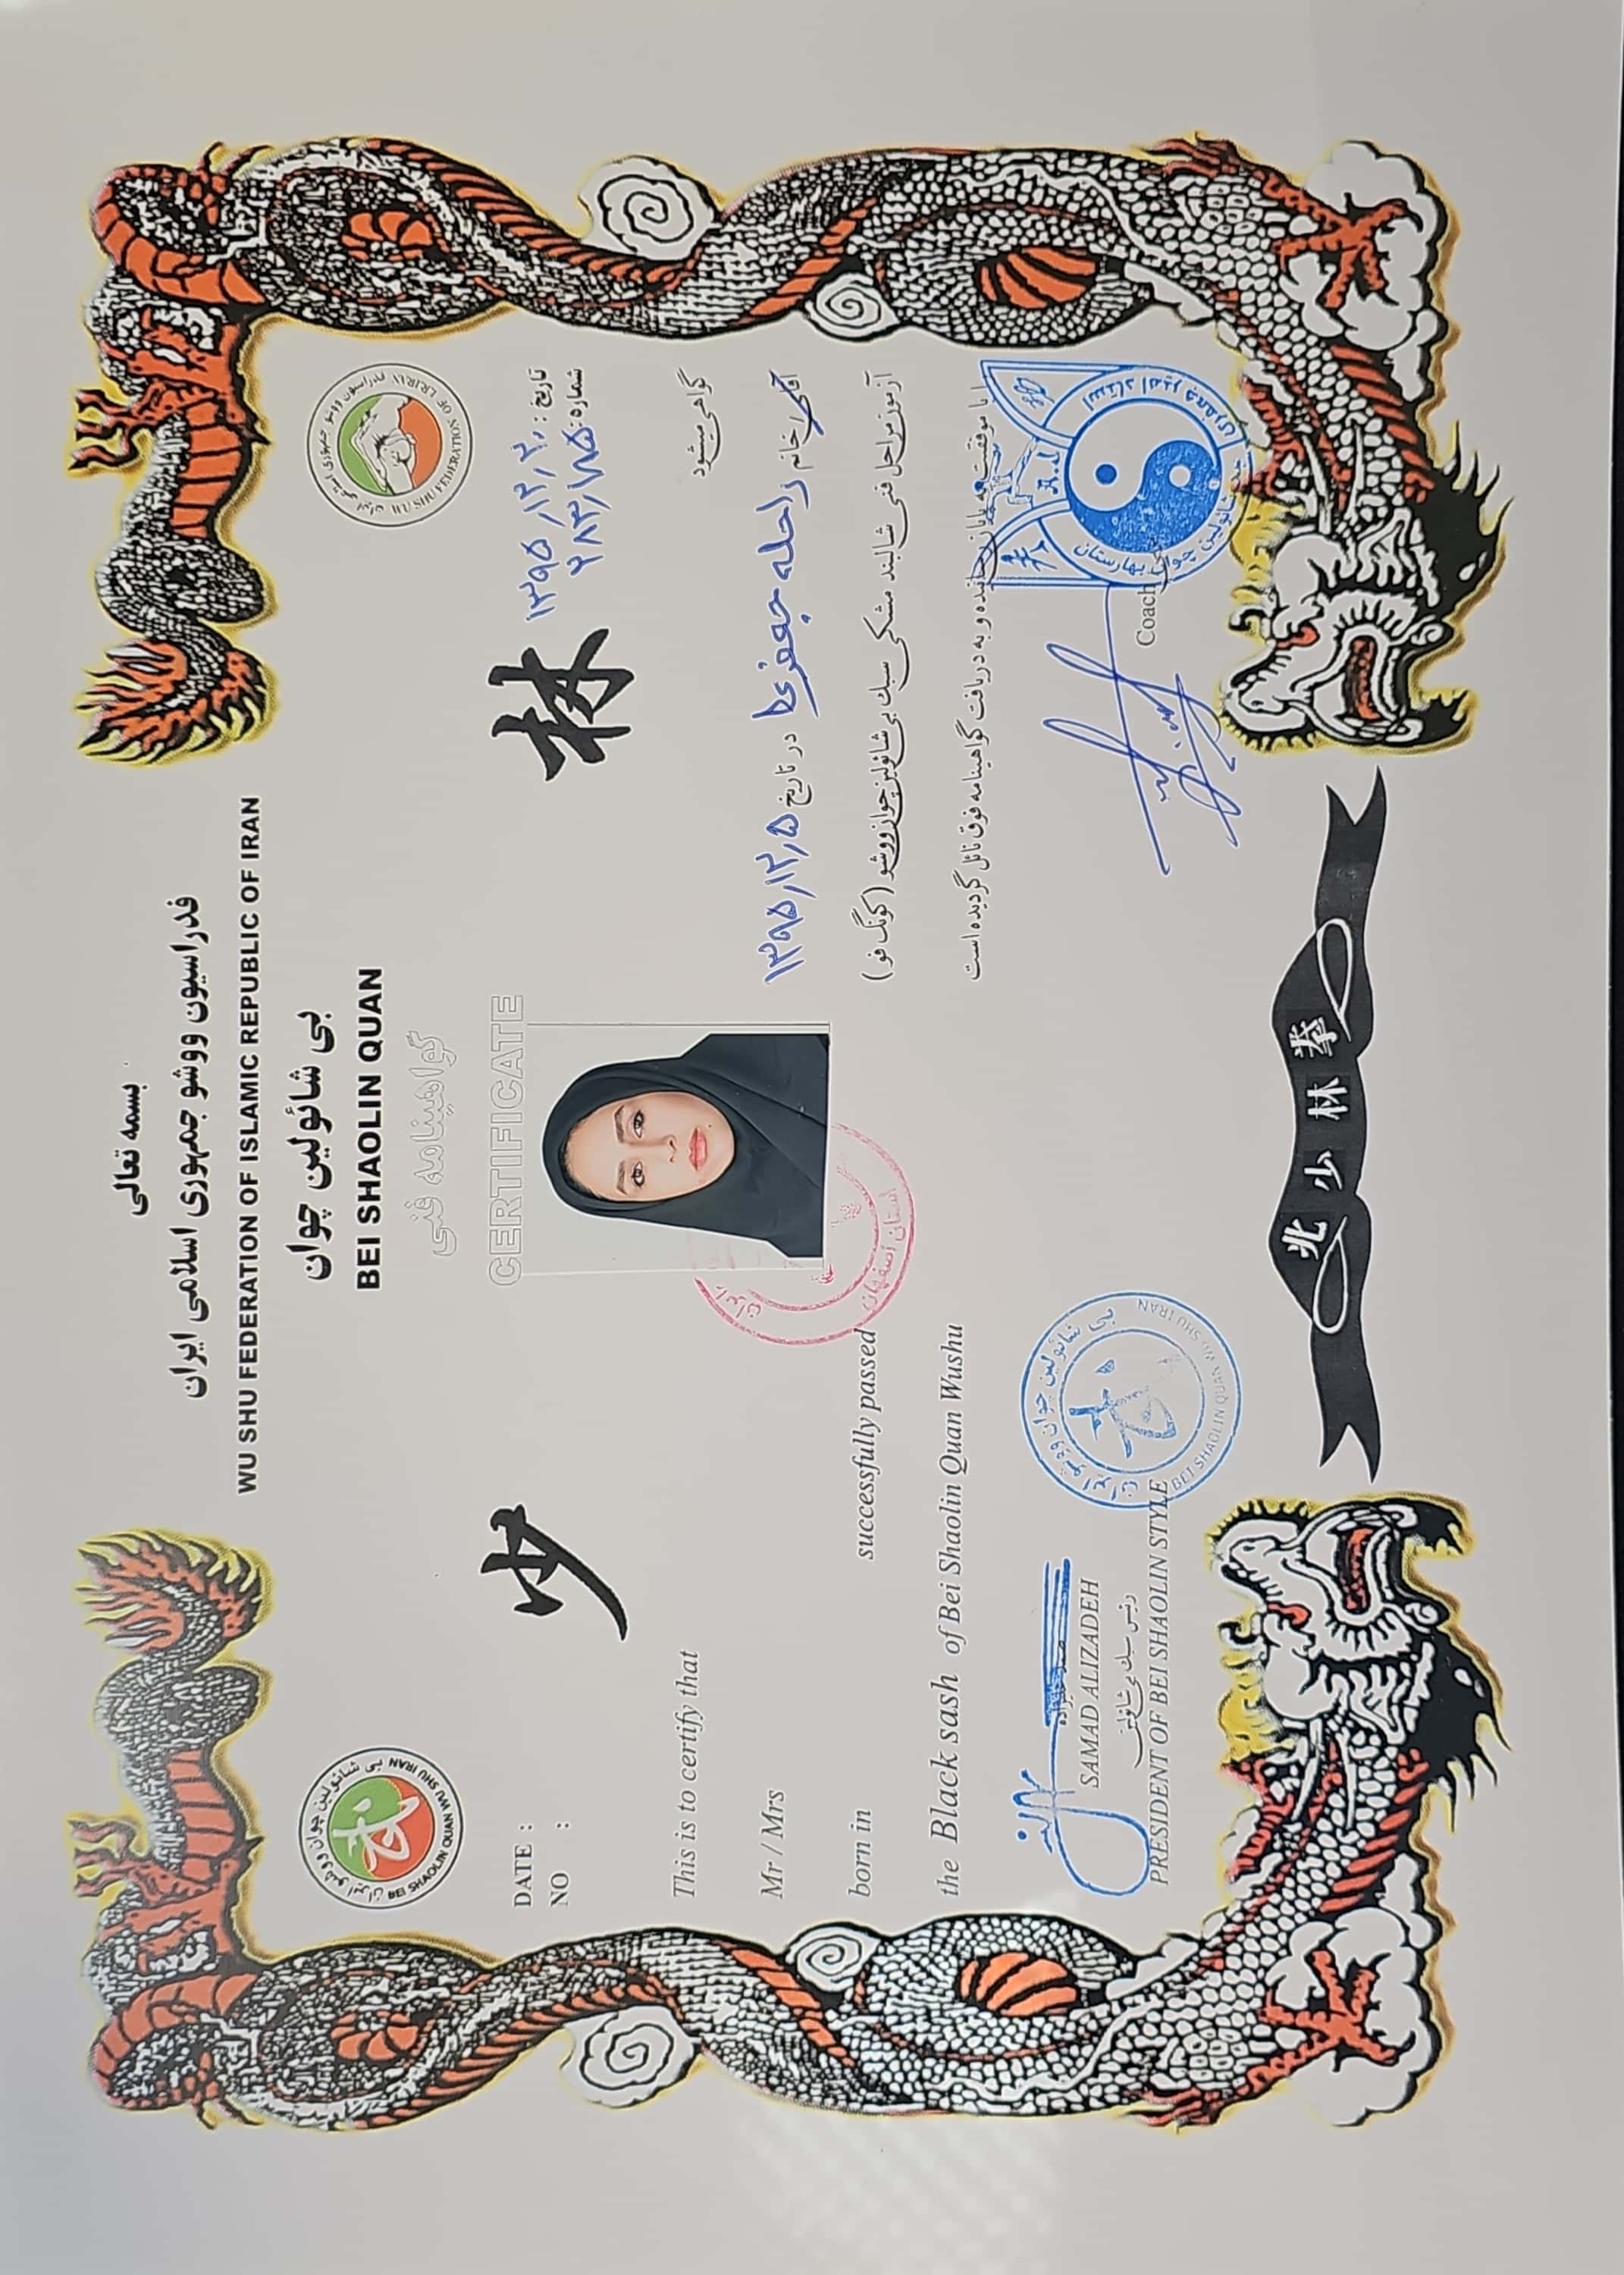 بسمه تعالی
فدراسیون ووشو جمهوری اسلامی ایران
WU SHU FEDERATION OF ISLAMIC REPUBLIC OF IRAN
بی شائولین چوان
BEI SHAOLIN QUAN
گواهینامه فنی
CERTIFICATE
بی شائولین چوان ووشو ایران
BEI SHAOLIN QUAN WU SHU IRAN
فدراسیون ووشو جمهوری اسلامی ایران
WU SHU FEDERATION OF I.R.IRAN
少 林
DATE :
NO :
تاریخ: ۱۳۹۵/۱۲/۲۰
شماره: ۲۸۳/۱۸۵
This is to certify that
Mr / Mrs
born in successfully passed
the Black sash of Bei Shaolin Quan Wushu
گواهی میشود
آقای/خانم راحله جعفری در تاریخ ۱۳۹۵/۱۲/۵
آزمون مراحل فنی شالبند مشکی سبک بی شائولین چوان ووشو (کونگ فو)
را با موفقیت به پایان رسانده و به دریافت گواهینامه فوق نائل گردیده است
استان اصفهان
SAMAD ALIZADEH
رئیس سبک بی شائولین
PRESIDENT OF BEI SHAOLIN STYLE
بی شائولین چوان ووشو ایران
BEI SHAOLIN QUAN WU SHU IRAN
Coach
شائولین چوان بهارستان
北少林拳